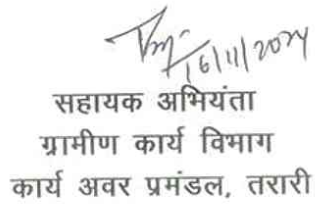 16/11/2024
सहायक अभियंता
ग्रामीण कार्य विभाग
कार्य अवर प्रमंडल, तरारी